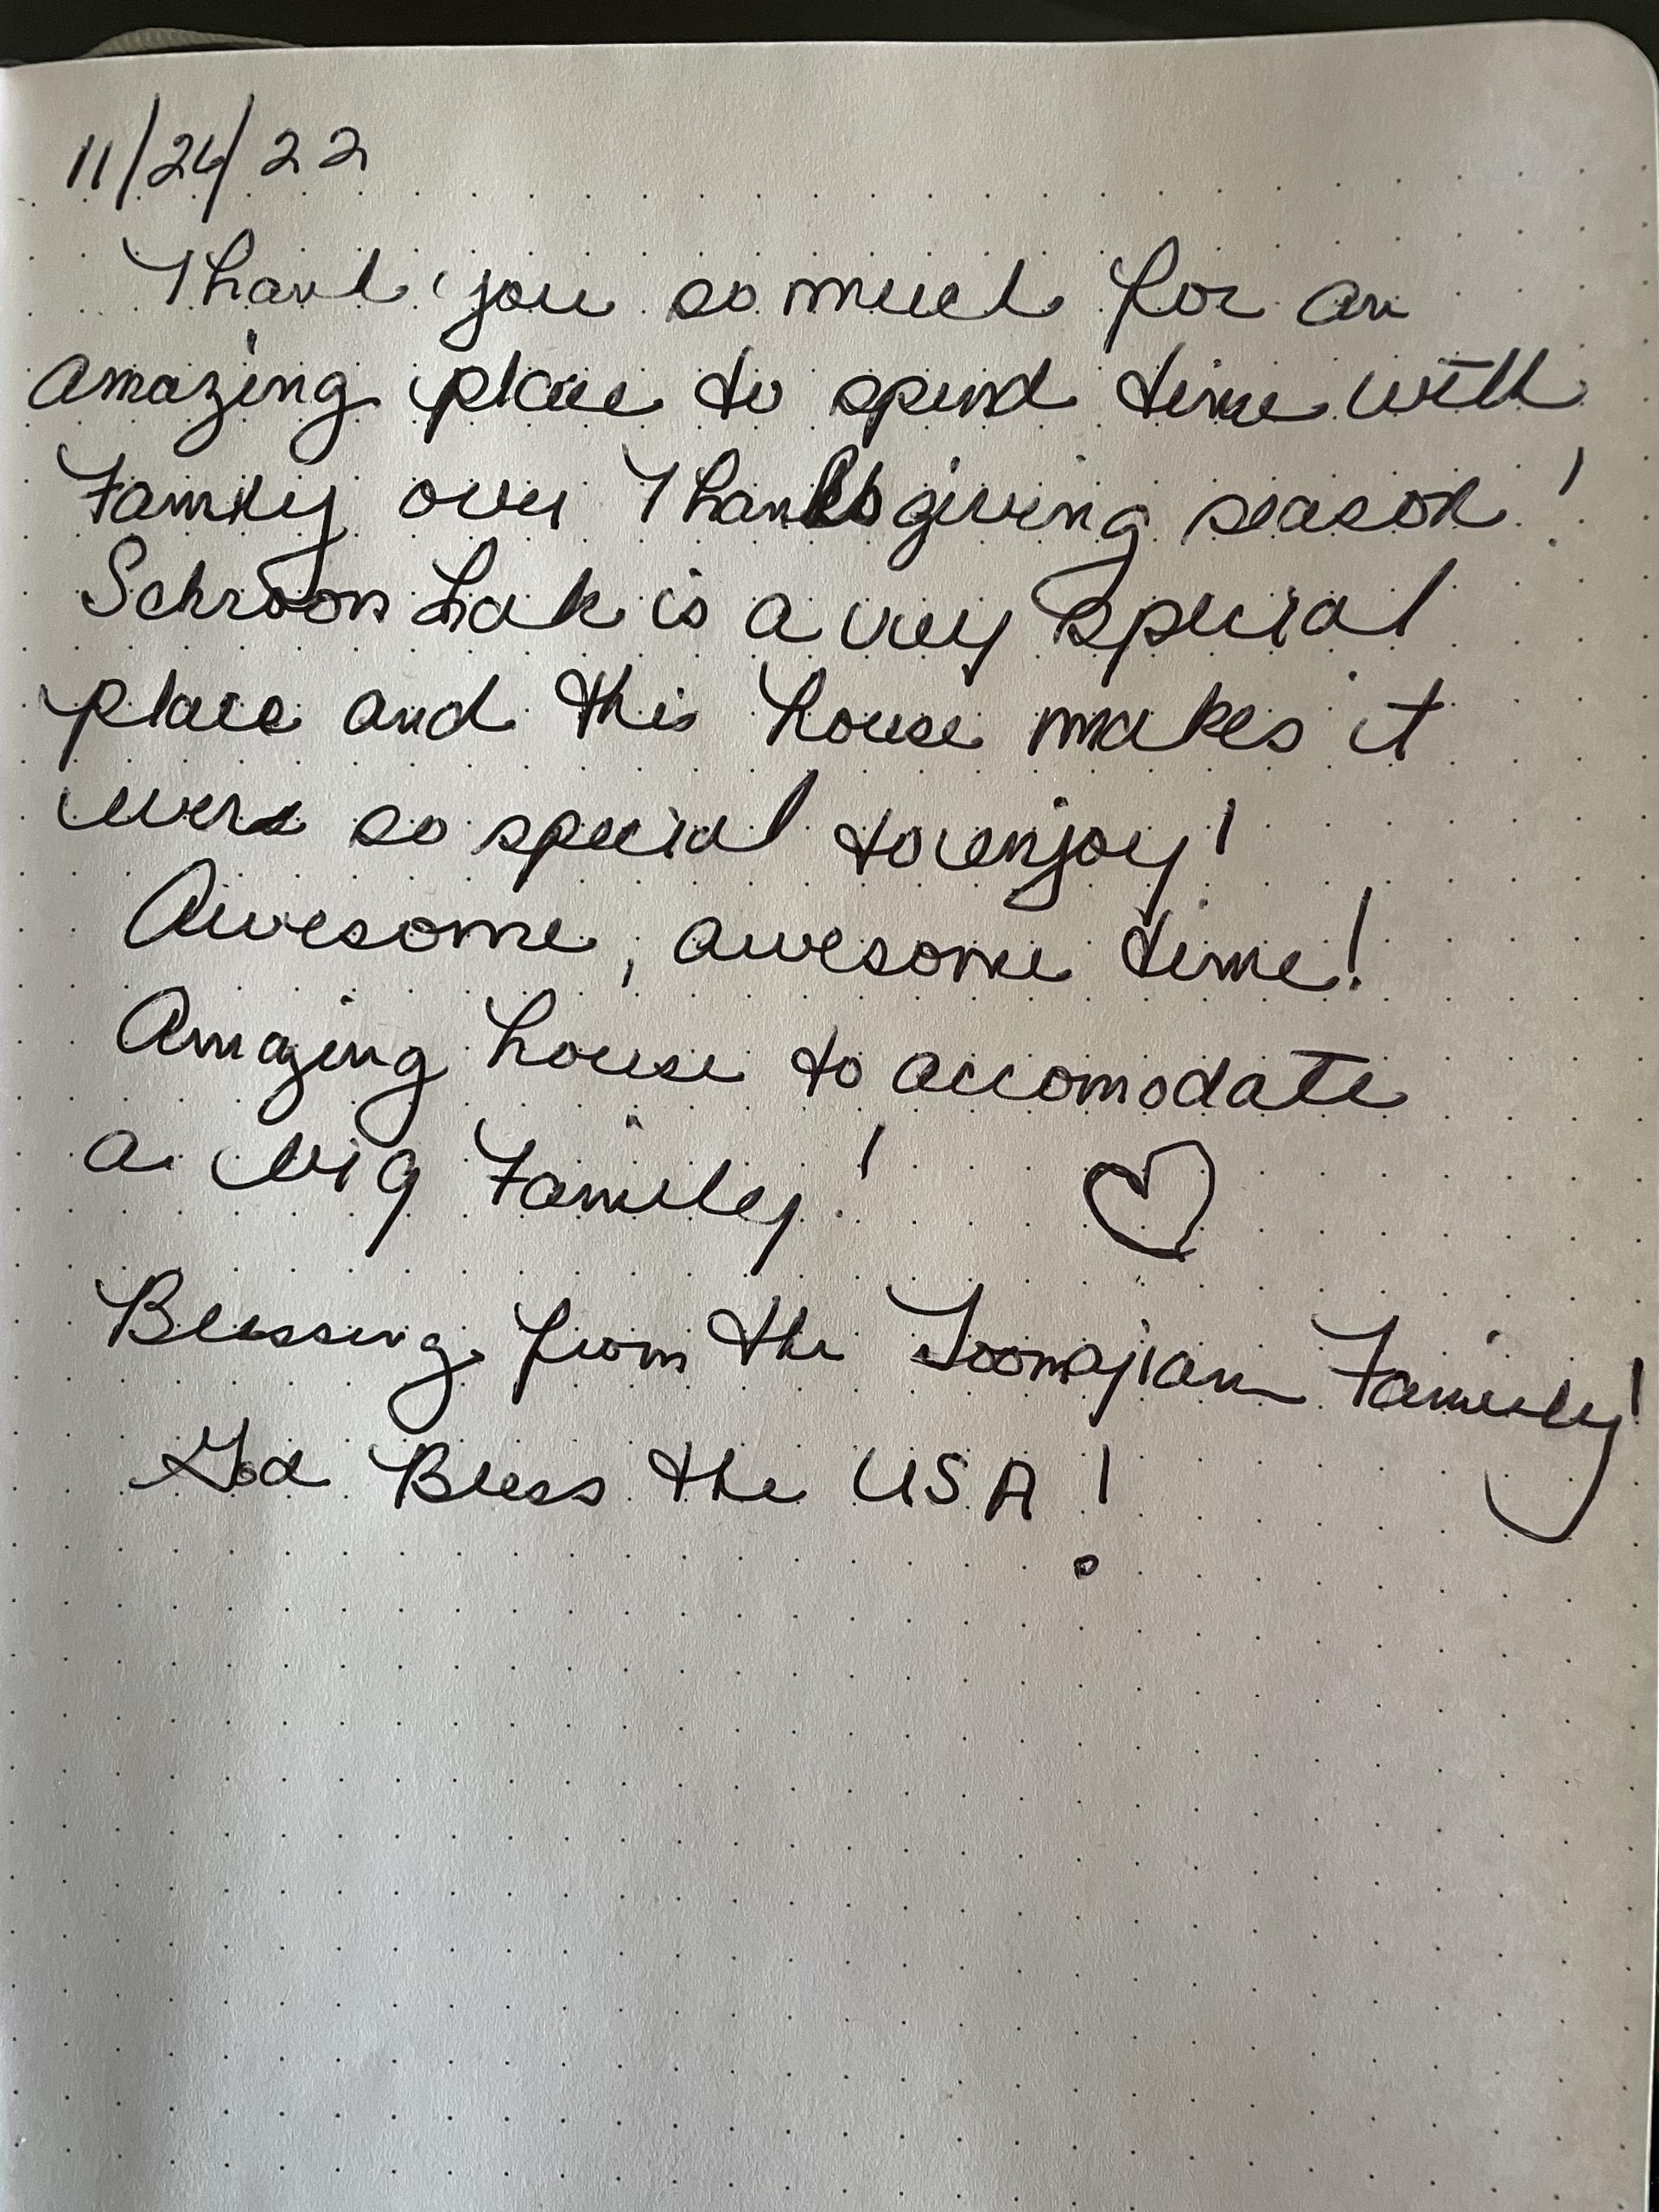 11/24/22
Thank you so much for an
amazing place to spend time with
Family over Thanksgiving season!
Schroon Lake is a very special
place and this house makes it
ever so special to enjoy!
Awesome, awesome time!
Amazing house to accomodate
a big Family! ♡
Blessing from the Toomajian Family!
God Bless the USA!